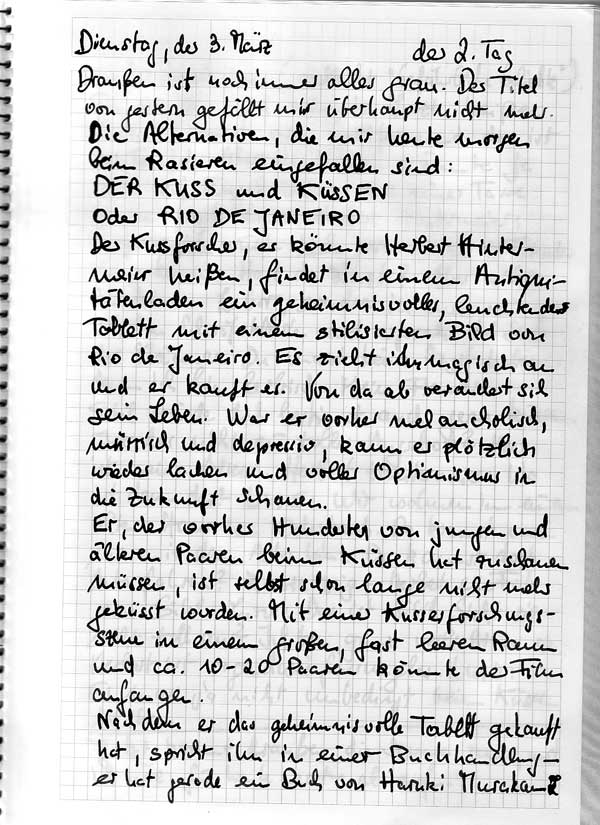 Dienstag, der 3. März der 2. Tag
Draußen ist noch immer alles grau. Der Titel
von gestern gefällt mir überhaupt nicht mehr.
Die Alternativen, die mir heute morgen
beim Rasieren eingefallen sind:
DER KUSS und KÜSSEN
Oder RIO DE JANEIRO
Der Kussforscher, er könnte Herbert Hinter-
meier heißen, findet in einem Antiqui-
tätenladen ein geheimnisvolles, leuchtendes
Tablett mit einem stilisierten Bild von
Rio de Janeiro. Es zieht ihn magisch an
und er kauft es. Von da ab verändert sich
sein Leben. War er vorher melancholisch,
mürrisch und depressiv, kann er plötzlich
wieder lachen und voller Optimismus in
die Zukunft schauen.
Er, der vorher Hunderten von jungen und
älteren Paaren beim Küssen hat zuschauen
müssen, ist selbst schon lange nicht mehr
geküsst worden. Mit einer Kusserforschungs-
szene in einem großen, fast leeren Raum
und ca. 10-20 Paaren könnte der Film
anfangen.
Nachdem er das geheimnisvolle Tablett gekauft
hat, spricht ihn in einer Buchhandlung -
er hat gerade ein Buch von Haruki Murakami